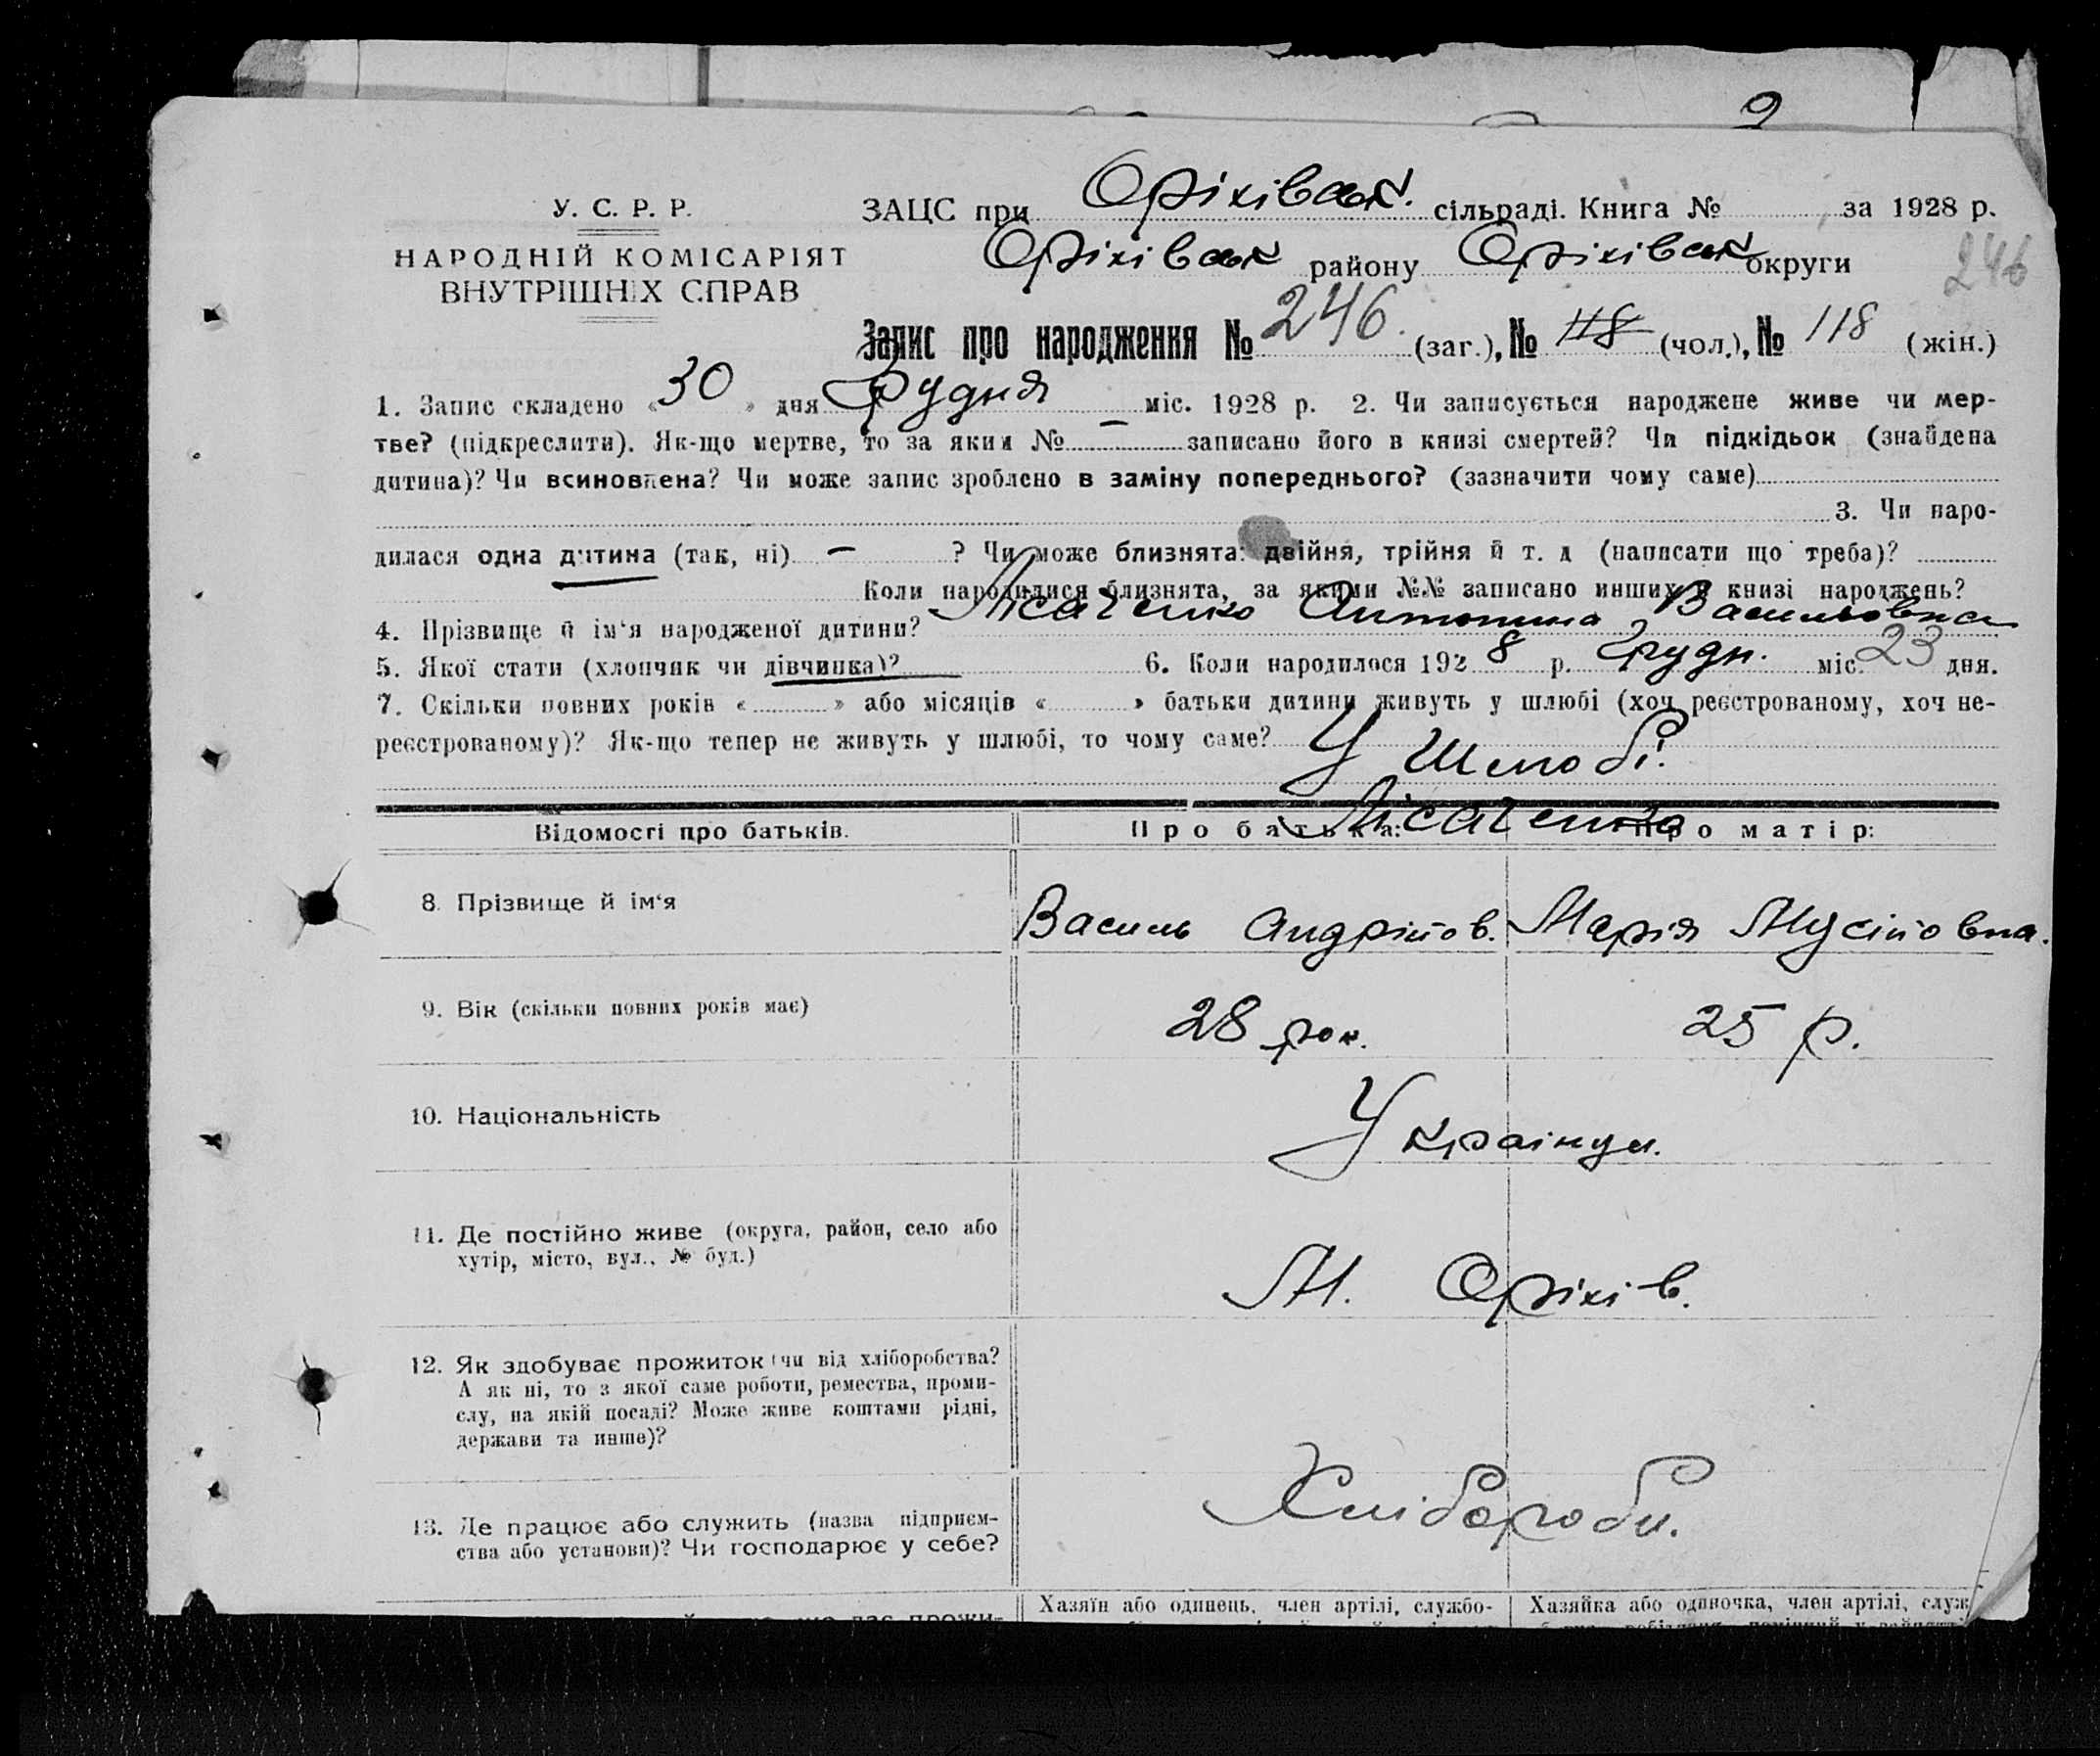 9
У. С. Р. Р.
НАРОДНІЙ КОМІСАРІЯТ
ВНУТРІШНІХ СПРАВ
ЗАЦС при Оріхівськ. сільраді. Книга № за 1928 р.
Оріхівськ району Оріхівськ округи
246
Запис про народження № 246. (заг.), № 118 (чол.), № 118 (жін.)
1. Запис складено «30» дня Грудня міс. 1928 р. 2. Чи записується народжене живе чи мер-
тве? (підкреслити). Як-що мертве, то за яким № — записано його в книзі смертей? Чи підкідьок (знайдена
дитина)? Чи всиновлена? Чи може запис зроблено в заміну попереднього? (зазначити чому саме)
3. Чи наро-
дилася одна дитина (так, ні) — ? Чи може близнята: двійня, трійня й т. д (написати що треба)?
Коли народилися близнята, за якими №№ записано инших в книзі народжень?
4. Прізвище й ім‘я народженої дитини? Лісаченко Антонина Васильовна
5. Якої стати (хлопчик чи дівчинка)? 6. Коли народилося 1928 р. Грудн. міс. 23 дня.
7. Скільки повних років « » або місяців « » батьки дитини живуть у шлюбі (хоч реєстрованому, хоч не-
реєстрованому)? Як-що тепер не живуть у шлюбі, то чому саме? У шлюбі.
Відомості про батьків. Про батька: Про матір:
Лісаченко
8. Прізвище й ім‘я Василь Андрійов. Марія Мусійовна.
9. Вік (скільки повних років має) 28 рок. 25 р.
10. Національність Украінци.
11. Де постійно живе (округа, район, село або
хутір, місто, вул., № буд.) М. Оріхів.
12. Як здобуває прожиток (чи від хліборобства?
А як ні, то з якої саме роботи, ремества, проми-
слу, на якій посаді? Може живе коштами рідні,
держави та инше)?
Хлібороби.
13. Де працює або служить (назва підприєм-
ства або установи)? Чи господарює у себе?
Хазяїн або одинець, член артілі, службо- Хазяйка або одиночка, член артілі, служ